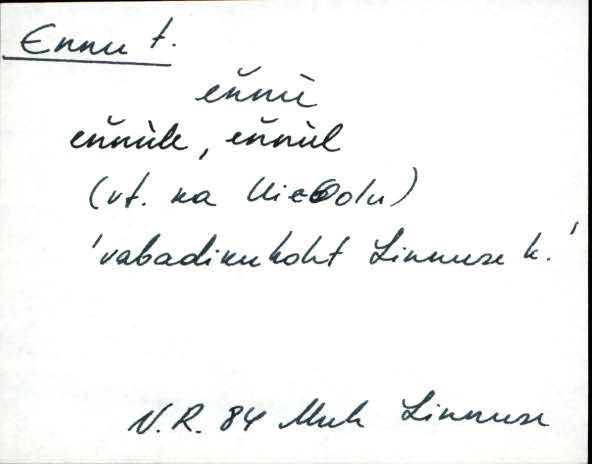 Ennu t.
eňnù
eňnùle, eňnùl
(vt. ka Uie Õolu)
'vabadikukoht Linnuse k.'
N.R. 84 Muh Linnuse